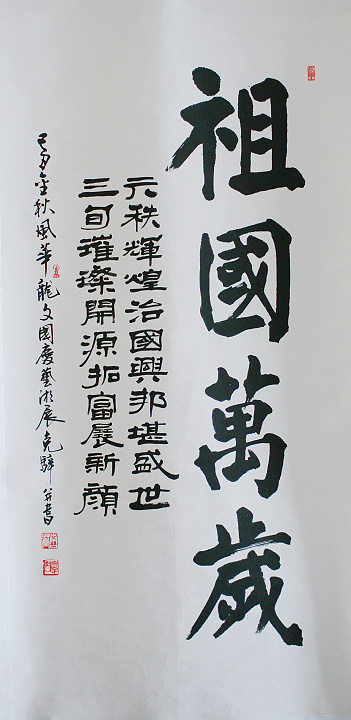 祖國萬歲
六秩輝煌治國興邦堪盛世
三旬璀璨開源拓富展新顏
己丑金秋風華龍文國慶藝術展克并書